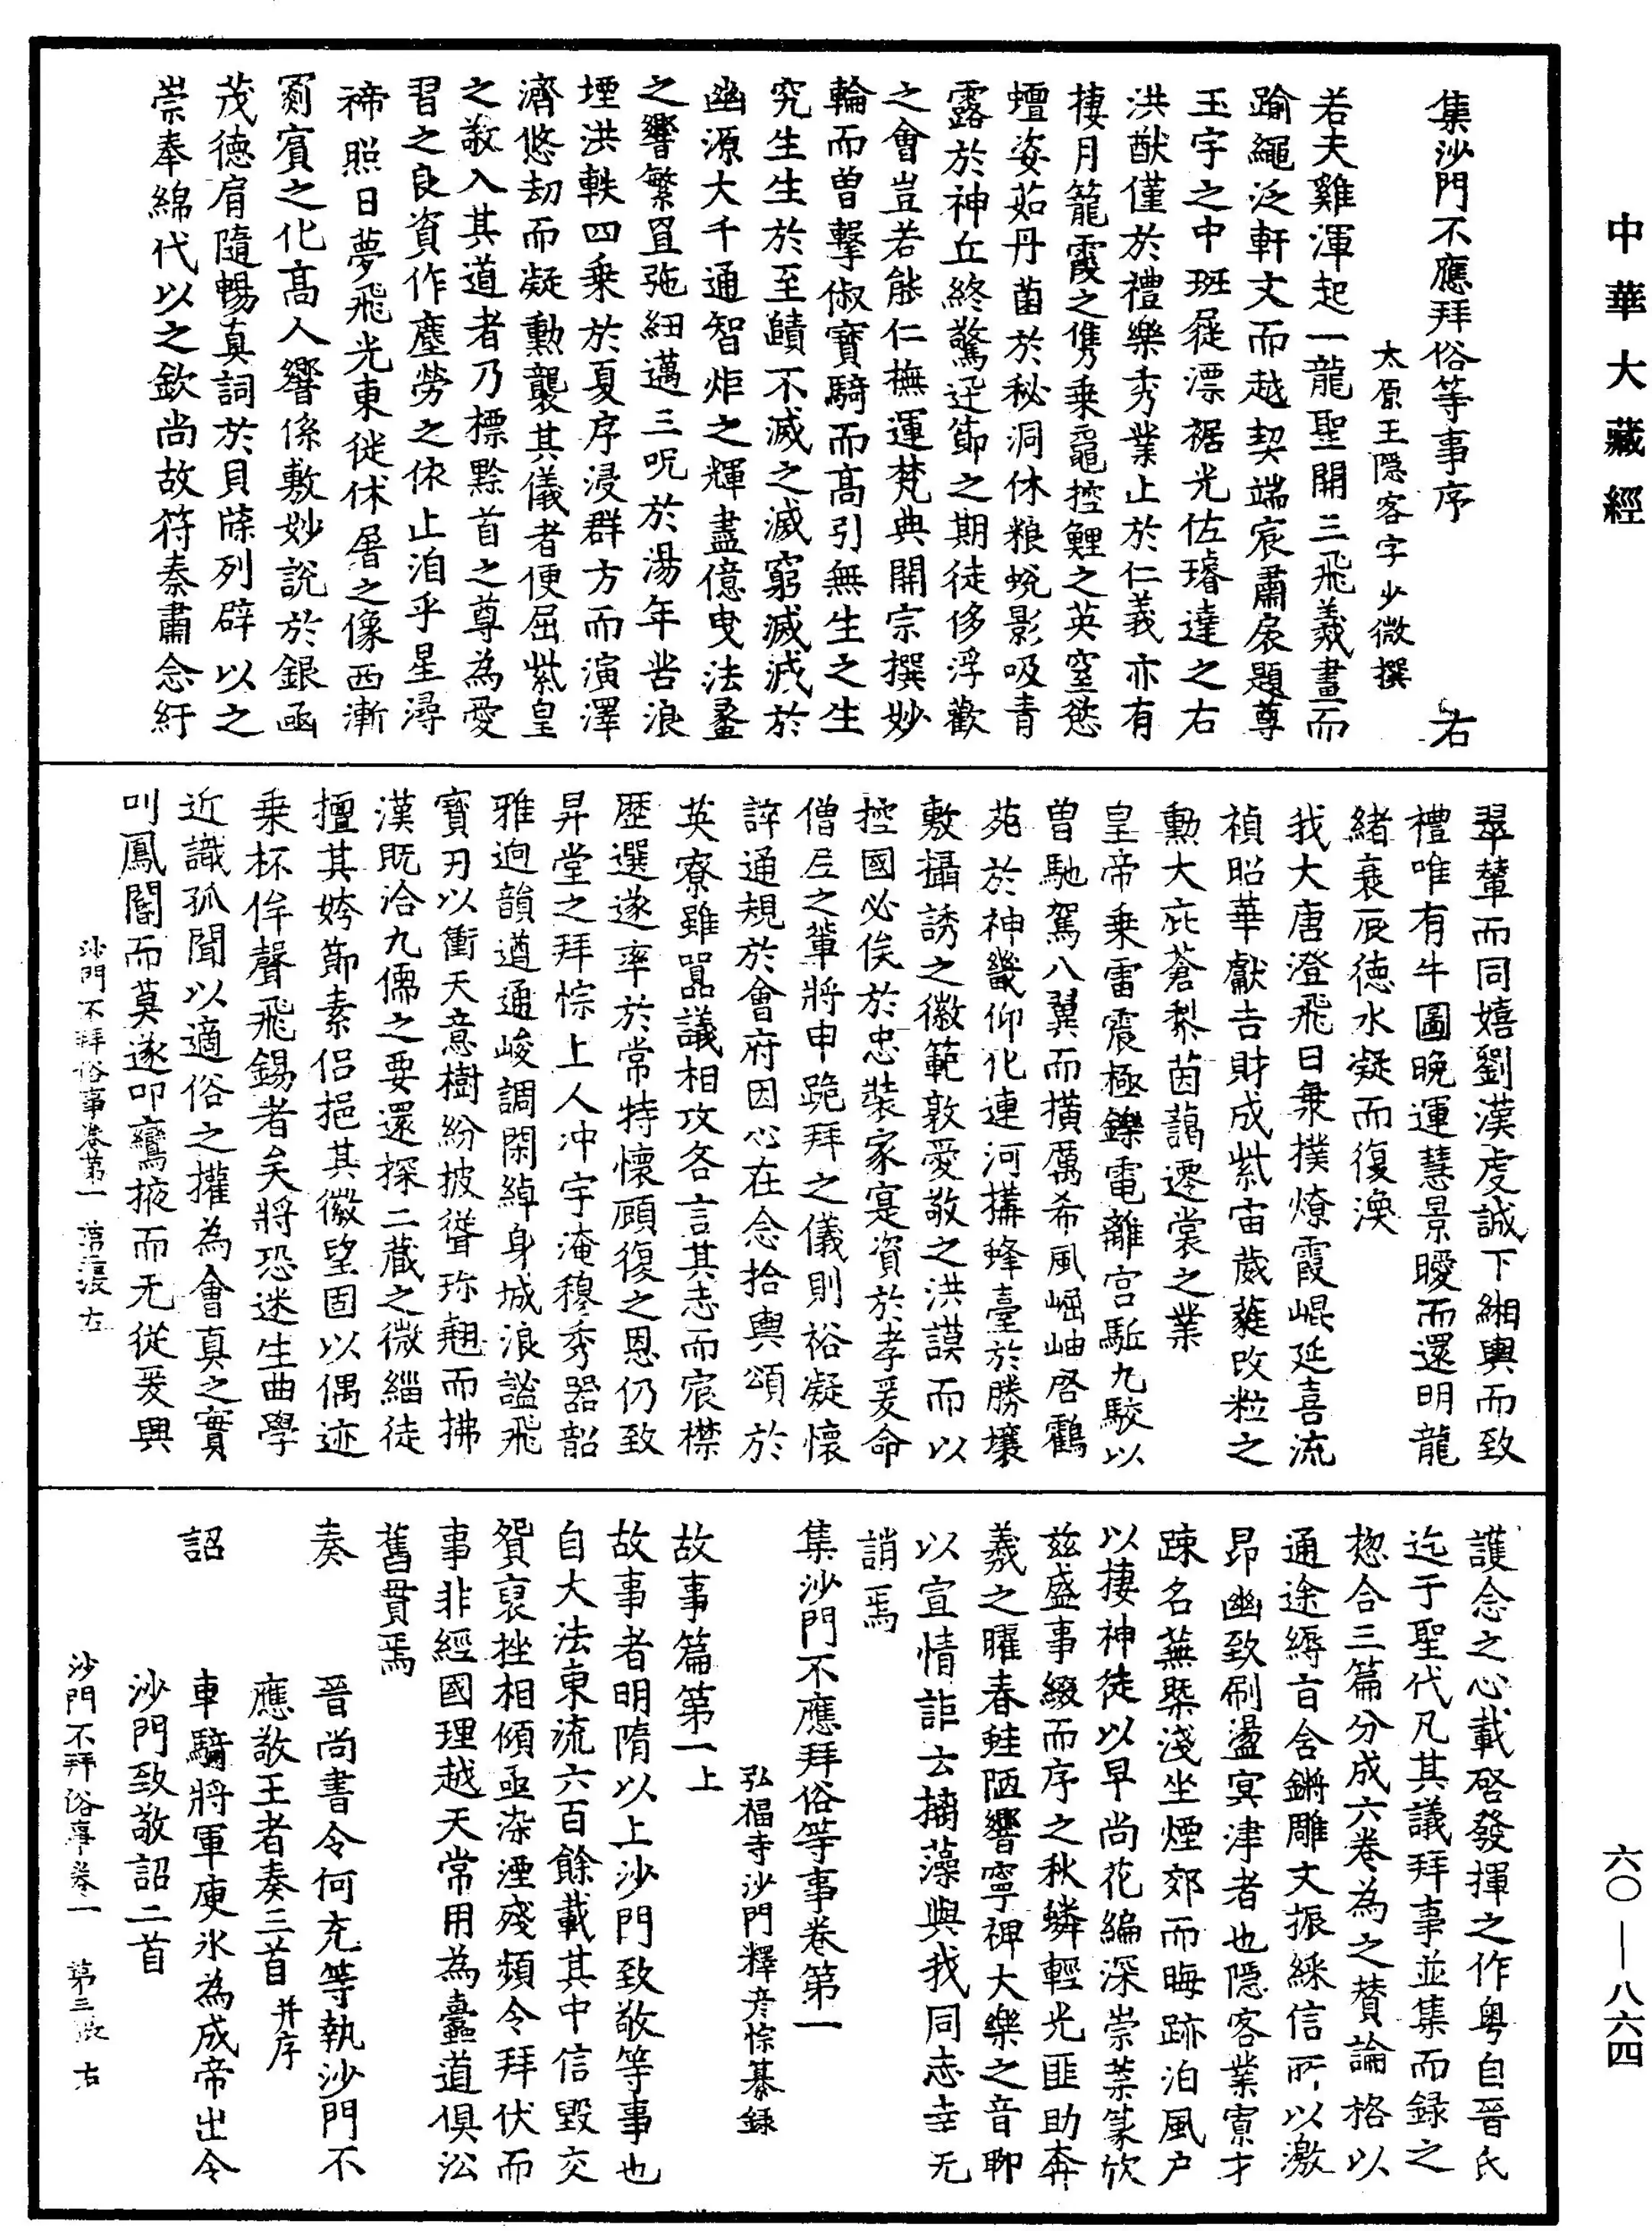 中華大藏經
集沙門不應拜俗等事序 右
太原王隱客字少微撰
若夫雞渾起一龍聖開三飛羲畫而
踰繩泛軒文而越契端扆肅扆題尊
玉宇之中班屣漂裾光佐璿達之右
洪猷僅於禮樂秀業止於仁義亦有
捿月籠霞之儁乗龜控鯉之英窒慾
蟺姿茹丹菌於秘洞休粮蛻影吸青
露於神丘終驚迋節之期徒侈浮歡
之會豈若能仁撫運梵典開宗撰妙
輪而曽擊俶寳騎而髙引無生之生
究生生於至賾不滅之滅窮滅滅於
幽源大千通智炬之輝盡億曳法䗍
之響繁罝弛紐邁三呪於湯年沓浪
堙洪軼四乗於夏序浸群方而演澤
濟悠劫而凝勳襲其儀者便屈紫皇
之敬入其道者乃標黔首之尊為愛
習之良資作塵勞之依止洎乎星潯
禘照日夢飛光東徙休屠之像西漸
罽賓之化髙人響係敷妙說於銀函
茂德肩隨暢真詞於貝牒列辟以之
崇奉綿代以之欽尚故苻秦肅念紆
翠輦而同嬉劉漢虔誠下緗輿而致
禮唯有牛圖晚運慧景曖而還明龍
緒衰辰德水凝而復渙
我大唐澄飛日乗撲燎霞崐延喜流
禎昭華獻吉財成紫宙葳蕤改粒之
勳大庇蒼黎茵藹遷裳之業
皇帝乗雷震極鑠電離宮駈九駮以
曽馳駕八翼而撗厲希風崛岫啓鸖
苑於神畿仰化連河搆蜂臺於勝壤
敷攝誘之徽範敦愛敬之洪謨而以
控國必俟於忠裝家寔資於孝爰命
僧𡰱之輩將申跪拜之儀則裕凝懷
誶通規於會府因心在念拾輿頌於
英寮雖㗊議相攻各言其志而宸襟
歷選遂率於常特懷顧復之恩仍致
昇堂之拜悰上人冲宇淹穆秀器韶
雅逈韻遒通峻調閑綽身城浪謐飛
寳刃以衝天意樹紛披聳珎翹而拂
漢既洽九儒之要還探二蔵之微緇徒
擅其姱節素侶挹其徽望固以偶迹
乗杯侔聲飛錫者矣將恐迷生曲學
近識孤聞以適俗之攉為會真之實
叫鳳閽而莫遂叩鸞掖而无從爰興
沙門不拜俗事卷第一 第二張 右
護念之心載啓發揮之作粤自晉氏
迄于聖代凡其議拜事並集而録之
揔合三篇分成六卷為之賛論格以
通途緯㫖含鏘雕文振綵信所以激
昂幽致刷盪冥津者也隱客業寮才
踈名蕪槩淺坐煙郊而晦跡泊風户
以捿神徒以早尚花編深崇葉篆欣
茲盛事綴而序之秋蟒輕光匪助奔
羲之曜春蛙陋響寧裨大樂之音聊
以宣情詎云摛藻與我同志幸无
誚焉
集沙門不應拜俗等事卷第一
弘福寺沙門釋彦悰纂録
故事篇第一上
故事者明隋以上沙門致敬等事也
自大法東流六百餘載其中信毀交
貿裒挫相傾亟染湮殘頻令拜伏而
事非經國理越天常用為蠹道俱㳂
舊貫焉
奏
晉尚書令何充等執沙門不
應敬王者奏三首并序
詔
車騎將軍庾氷為成帝出令
沙門致敬詔二首
沙門不拜俗事卷一 第三張 右
六〇—八六四